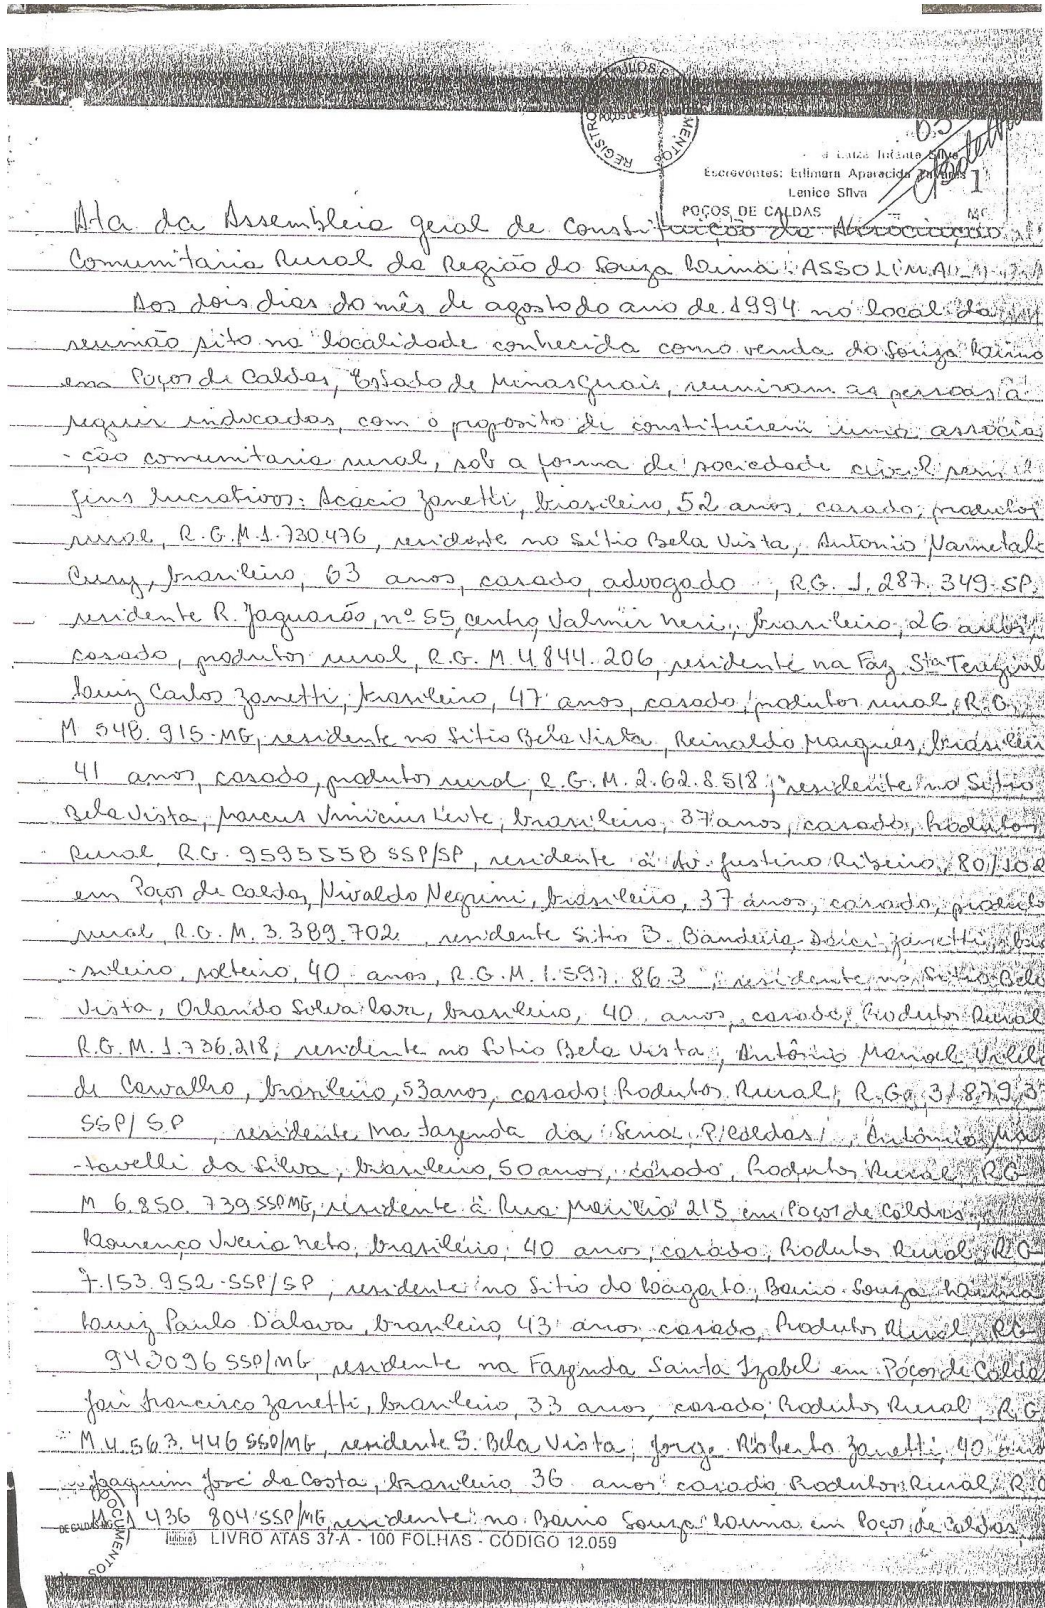 REGISTRO TÍTULOS E DOCUMENTOS
POÇOS DE CALDAS
03
Luiza Silva
Escreventes: Edimara Aparecida Tavares 1
Lenice Silva
POÇOS DE CALDAS - MG
Ata da Assembleia geral de constituição da Associação
Comunitaria Rural da Região do Souza Lima: ASSOLIMA
Aos dois dias do mês de agosto do ano de 1994 no local da
reunião sito na localidade conhecida como venda do Souza Lima
em Poços de Caldas, Estado de Minas Gerais, reuniram as pessoas a
seguir indicadas, com o proposito de constituirem uma associa
-ção comunitaria rural, sob a forma de sociedade civil sem
fins lucrativos: Acacio Zanetti, brasileiro, 52 anos, casado, produtor
rural, R.G.M.1.730.476, residente no Sítio Bela Vista, Antonio
Cury, brasileiro, 63 anos, casado, advogado, RG. 1.287.349-SP,
residente R. Jaguarão, nº 55, centro, Valmir Neri, brasileiro, 26 anos,
casado, produtor rural, R.G. M.4.844.206, residente na Faz. Sta Terezinh
Luiz Carlos Zanetti, brasileiro, 47 anos, casado, produtor rural, R.G.
M 548.915-MG, residente no Sitio Bela Vista, Reinaldo Marques, brasileir
41 anos, casado, produtor rural, R.G.M.2.628.518, residente no Sitio
Bela Vista, Marcus Vinicius Leite, brasileiro, 37 anos, casado, Produtor
Rural, R.G. 9595558 SSP/SP, residente à Av. Justino Ribeiro, 80/102
em Poços de Caldas, Nivaldo Negrini, brasileiro, 37 anos, casado, produto
rural, R.G. M. 3.389.702, residente Sitio B. Bandeira, Doici Zanetti, bra
-sileiro, solteiro, 40 anos, R.G.M. 1.597.863, residente no Sitio Bela
Vista, Orlando Salvalari, brasileiro, 40 anos, casado, Produtor Rural
R.G.M. 1.736.218, residente no Sitio Bela Vista, Antônio Manoel Vilela
de Carvalho, brasileiro, 53 anos, casado, Produtor Rural, R.G. 3.879.3
SSP/SP, residente na fazenda da Serra, P/Caldas, Antônio Ma
-tavelli da Silva, brasileiro, 50 anos, casado, Produtor Rural, RG
M 6.850.739 SSPMG, residente à Rua Marilia 215 em Poços de Caldas,
Lourenço Neto, brasileiro, 40 anos, casado, Produtor Rural, RG
7.153.952-SSP/SP, residente no Sitio do Lagarto, Bairro Souza Lima
Luiz Paulo Dalava, brasileiro, 43 anos, casado, Produtor Rural, RG
943096 SSP/MG, residente na Fazenda Santa Izabel em Poços de Calda
Jair Francisco Zanetti, brasileiro, 33 anos, casado, Produtor Rural, R.G.
M 4.563.446 SSP/MG, residente S. Bela Vista, Jorge Roberto Zanetti, 40 ano
Joaquim José da Costa, brasileiro, 36 anos casado Produtor Rural, R.G
436 804-SSP/MG, residente no Bairro Souza Lima em Poços de Caldas,
DOCUMENTOS
DE CALDAS-MG
LIVRO ATAS 37-A - 100 FOLHAS - CÓDIGO 12.059